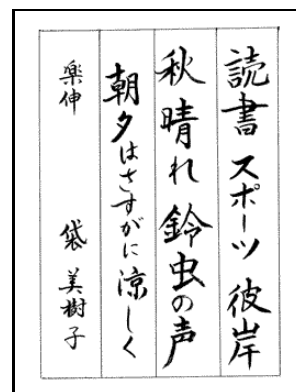 読書 スポーツ 彼岸
秋晴れ 鈴虫の声
朝夕はさすがに涼しく
楽伸 袋 美樹子